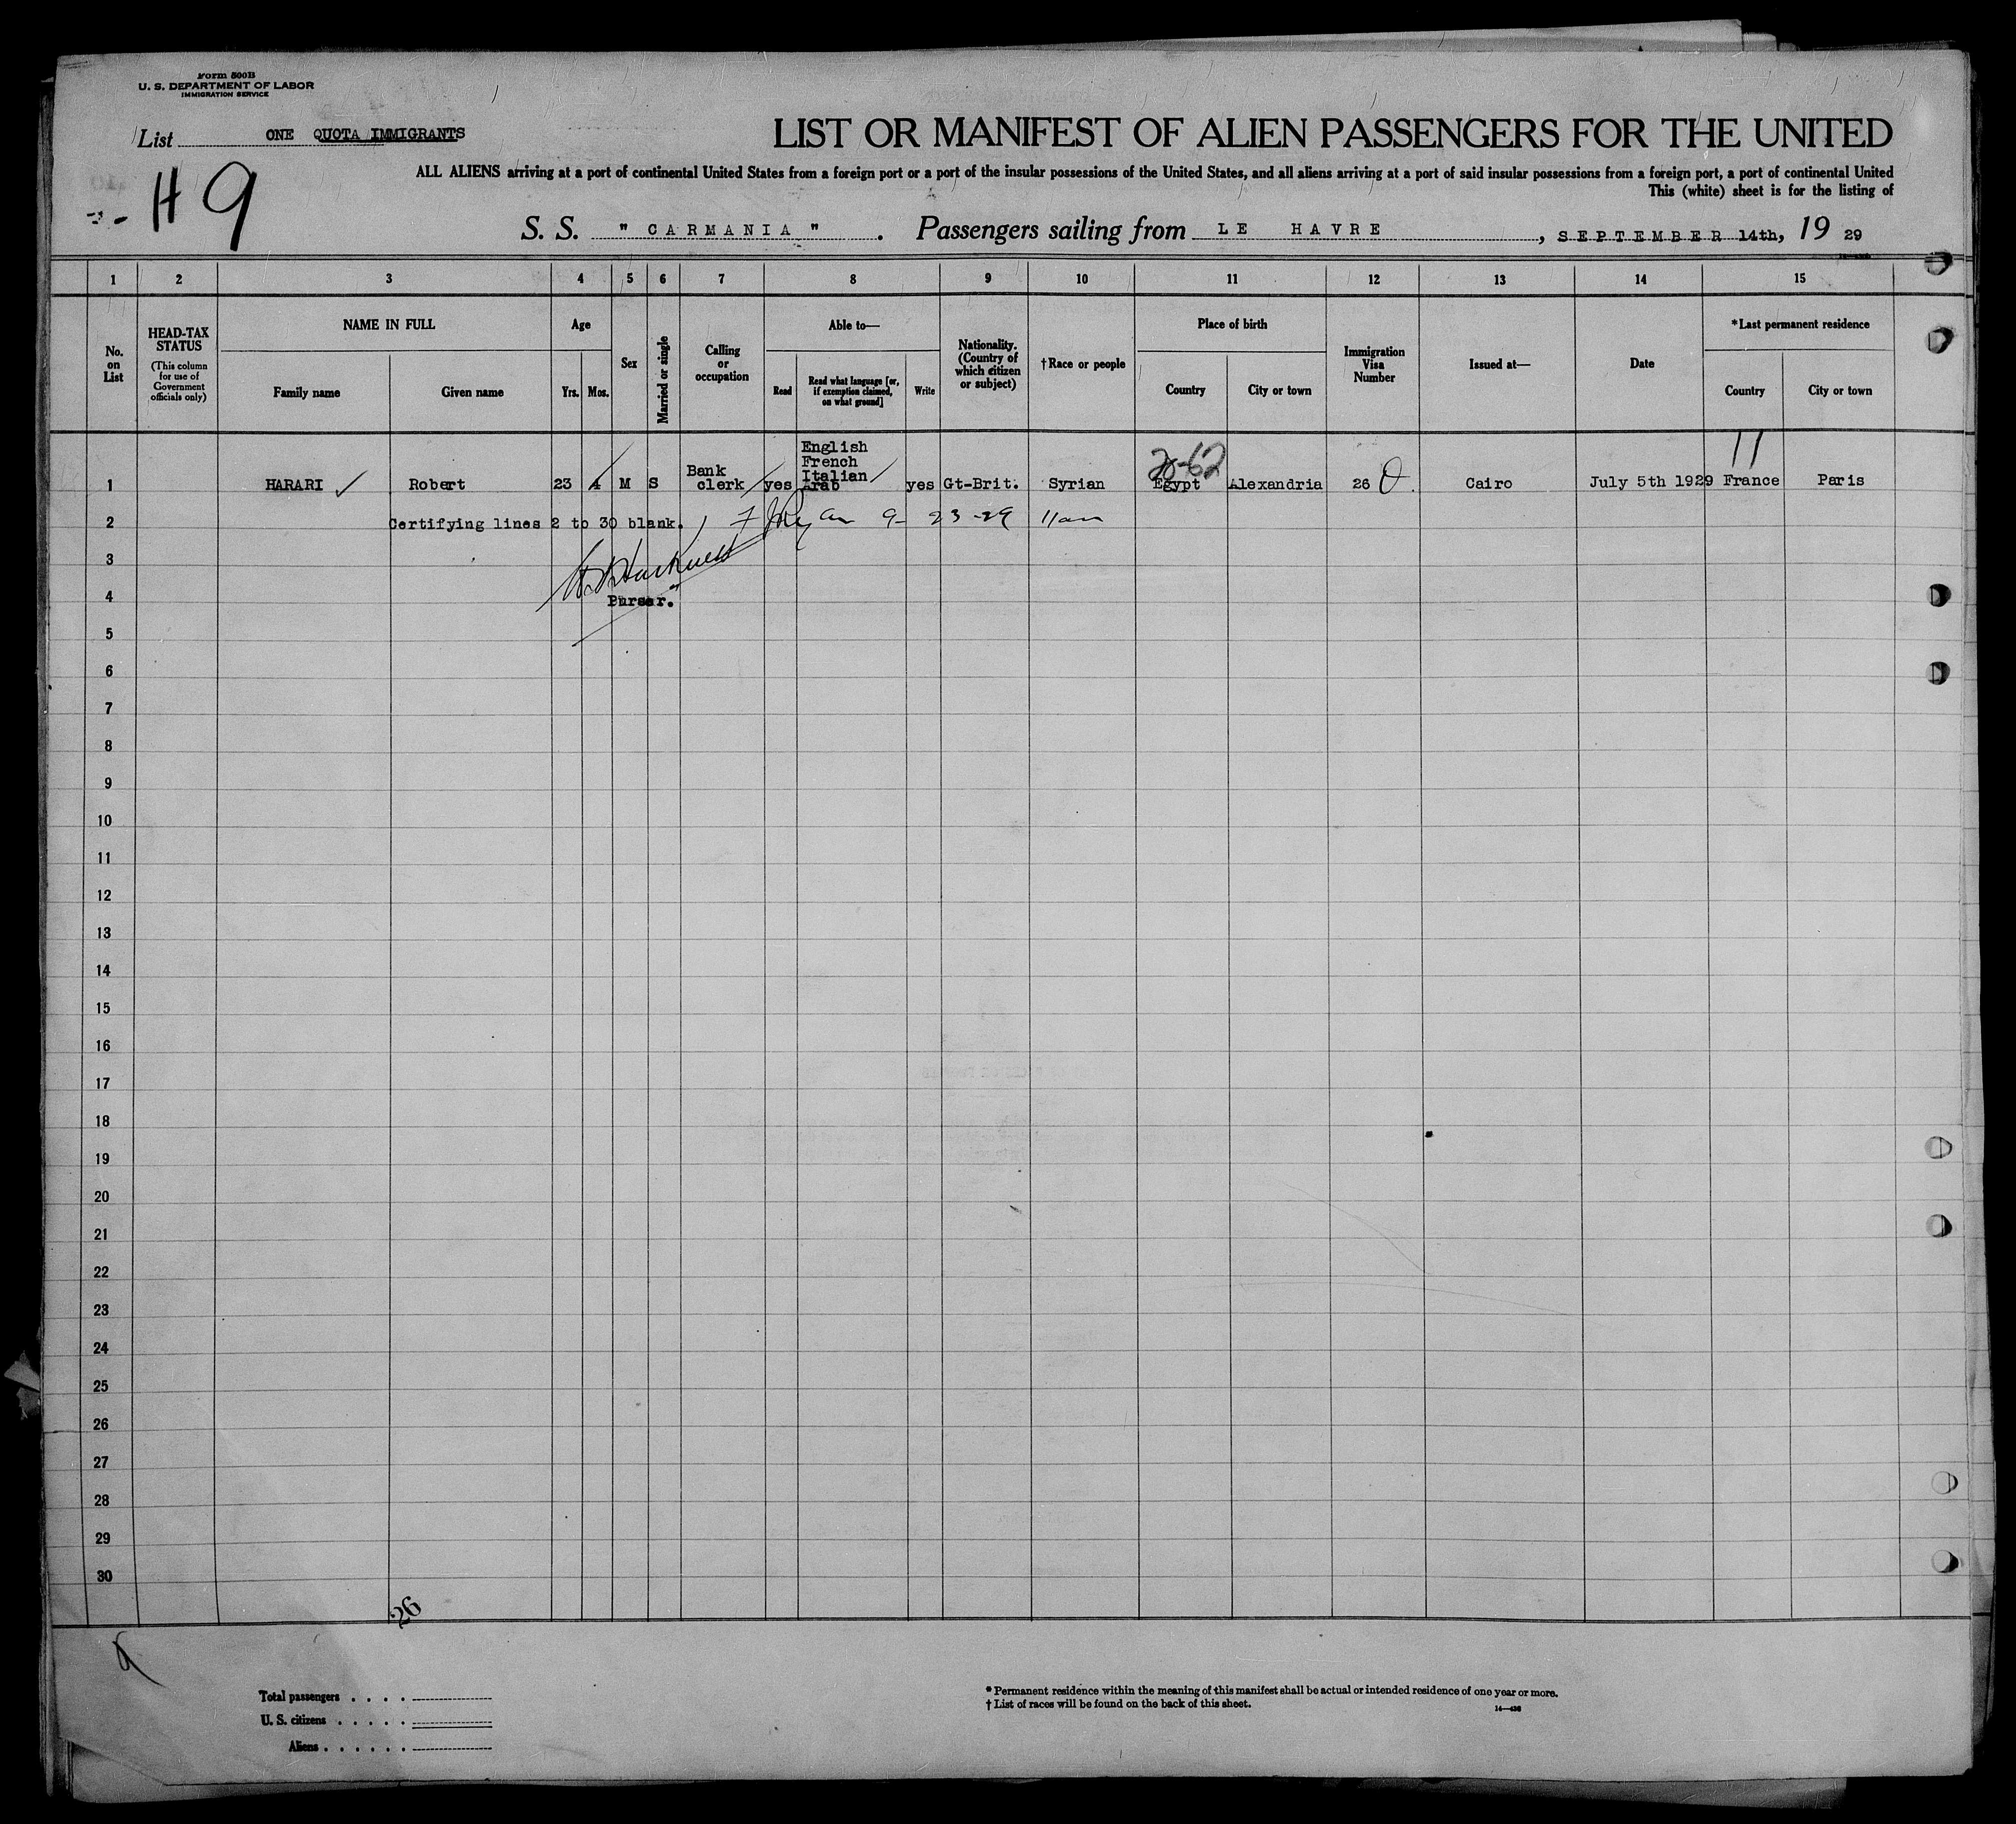 Form 500B
U. S. DEPARTMENT OF LABOR
IMMIGRATION SERVICE
List ONE QUOTA IMMIGRANTS
H 9
LIST OR MANIFEST OF ALIEN PASSENGERS FOR THE UNITED
ALL ALIENS arriving at a port of continental United States from a foreign port or a port of the insular possessions of the United States, and all aliens arriving at a port of said insular possessions from a foreign port, a port of continental United
This (white) sheet is for the listing of
S. S. " CARMANIA ". Passengers sailing from LE HAVRE, SEPTEMBER 14th, 19 29
1 2 3 4 5 6 7 8 9 10 11 12 13 14 15
No. on List
HEAD-TAX STATUS
(This column for use of Government officials only)
NAME IN FULL
Family name
Given name
Age
Yrs.
Mos.
Sex
Married or single
Calling or occupation
Able to—
Read
Read what language [or, if exemption claimed, on what ground]
Write
Nationality. (Country of which citizen or subject)
†Race or people
Place of birth
Country
City or town
Immigration Visa Number
Issued at—
Date
*Last permanent residence
Country
City or town
1 HARARI ✓ Robert 23 4 M S Bank clerk yes English French Italian Arab yes Gt-Brit. Syrian Egypt Alexandria 26 Cairo July 5th 1929 France Paris
11
2 Certifying lines 2 to 30 blank. 9-23-29 11am
3
4 Purser.
5
6
7
8
9
10
11
12
13
14
15
16
17
18
19
20
21
22
23
24
25
26
27
28
29
30
26
Total passengers . . . .
U. S. citizens . . . . .
Aliens . . . . . .
* Permanent residence within the meaning of this manifest shall be actual or intended residence of one year or more.
† List of races will be found on the back of this sheet.